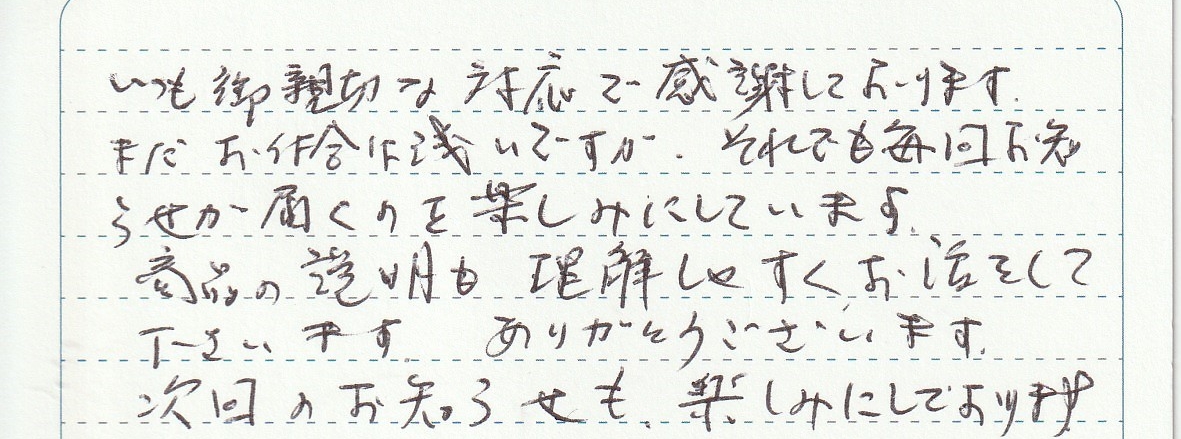 いつも御親切な対応で感謝しております。
まだお付合は浅いですが、それでも毎回お知
らせが届くのを楽しみにしています。
商品の説明も理解しやすくお話をして
下さいます。ありがとうございます。
次回のお知らせも、楽しみにしております